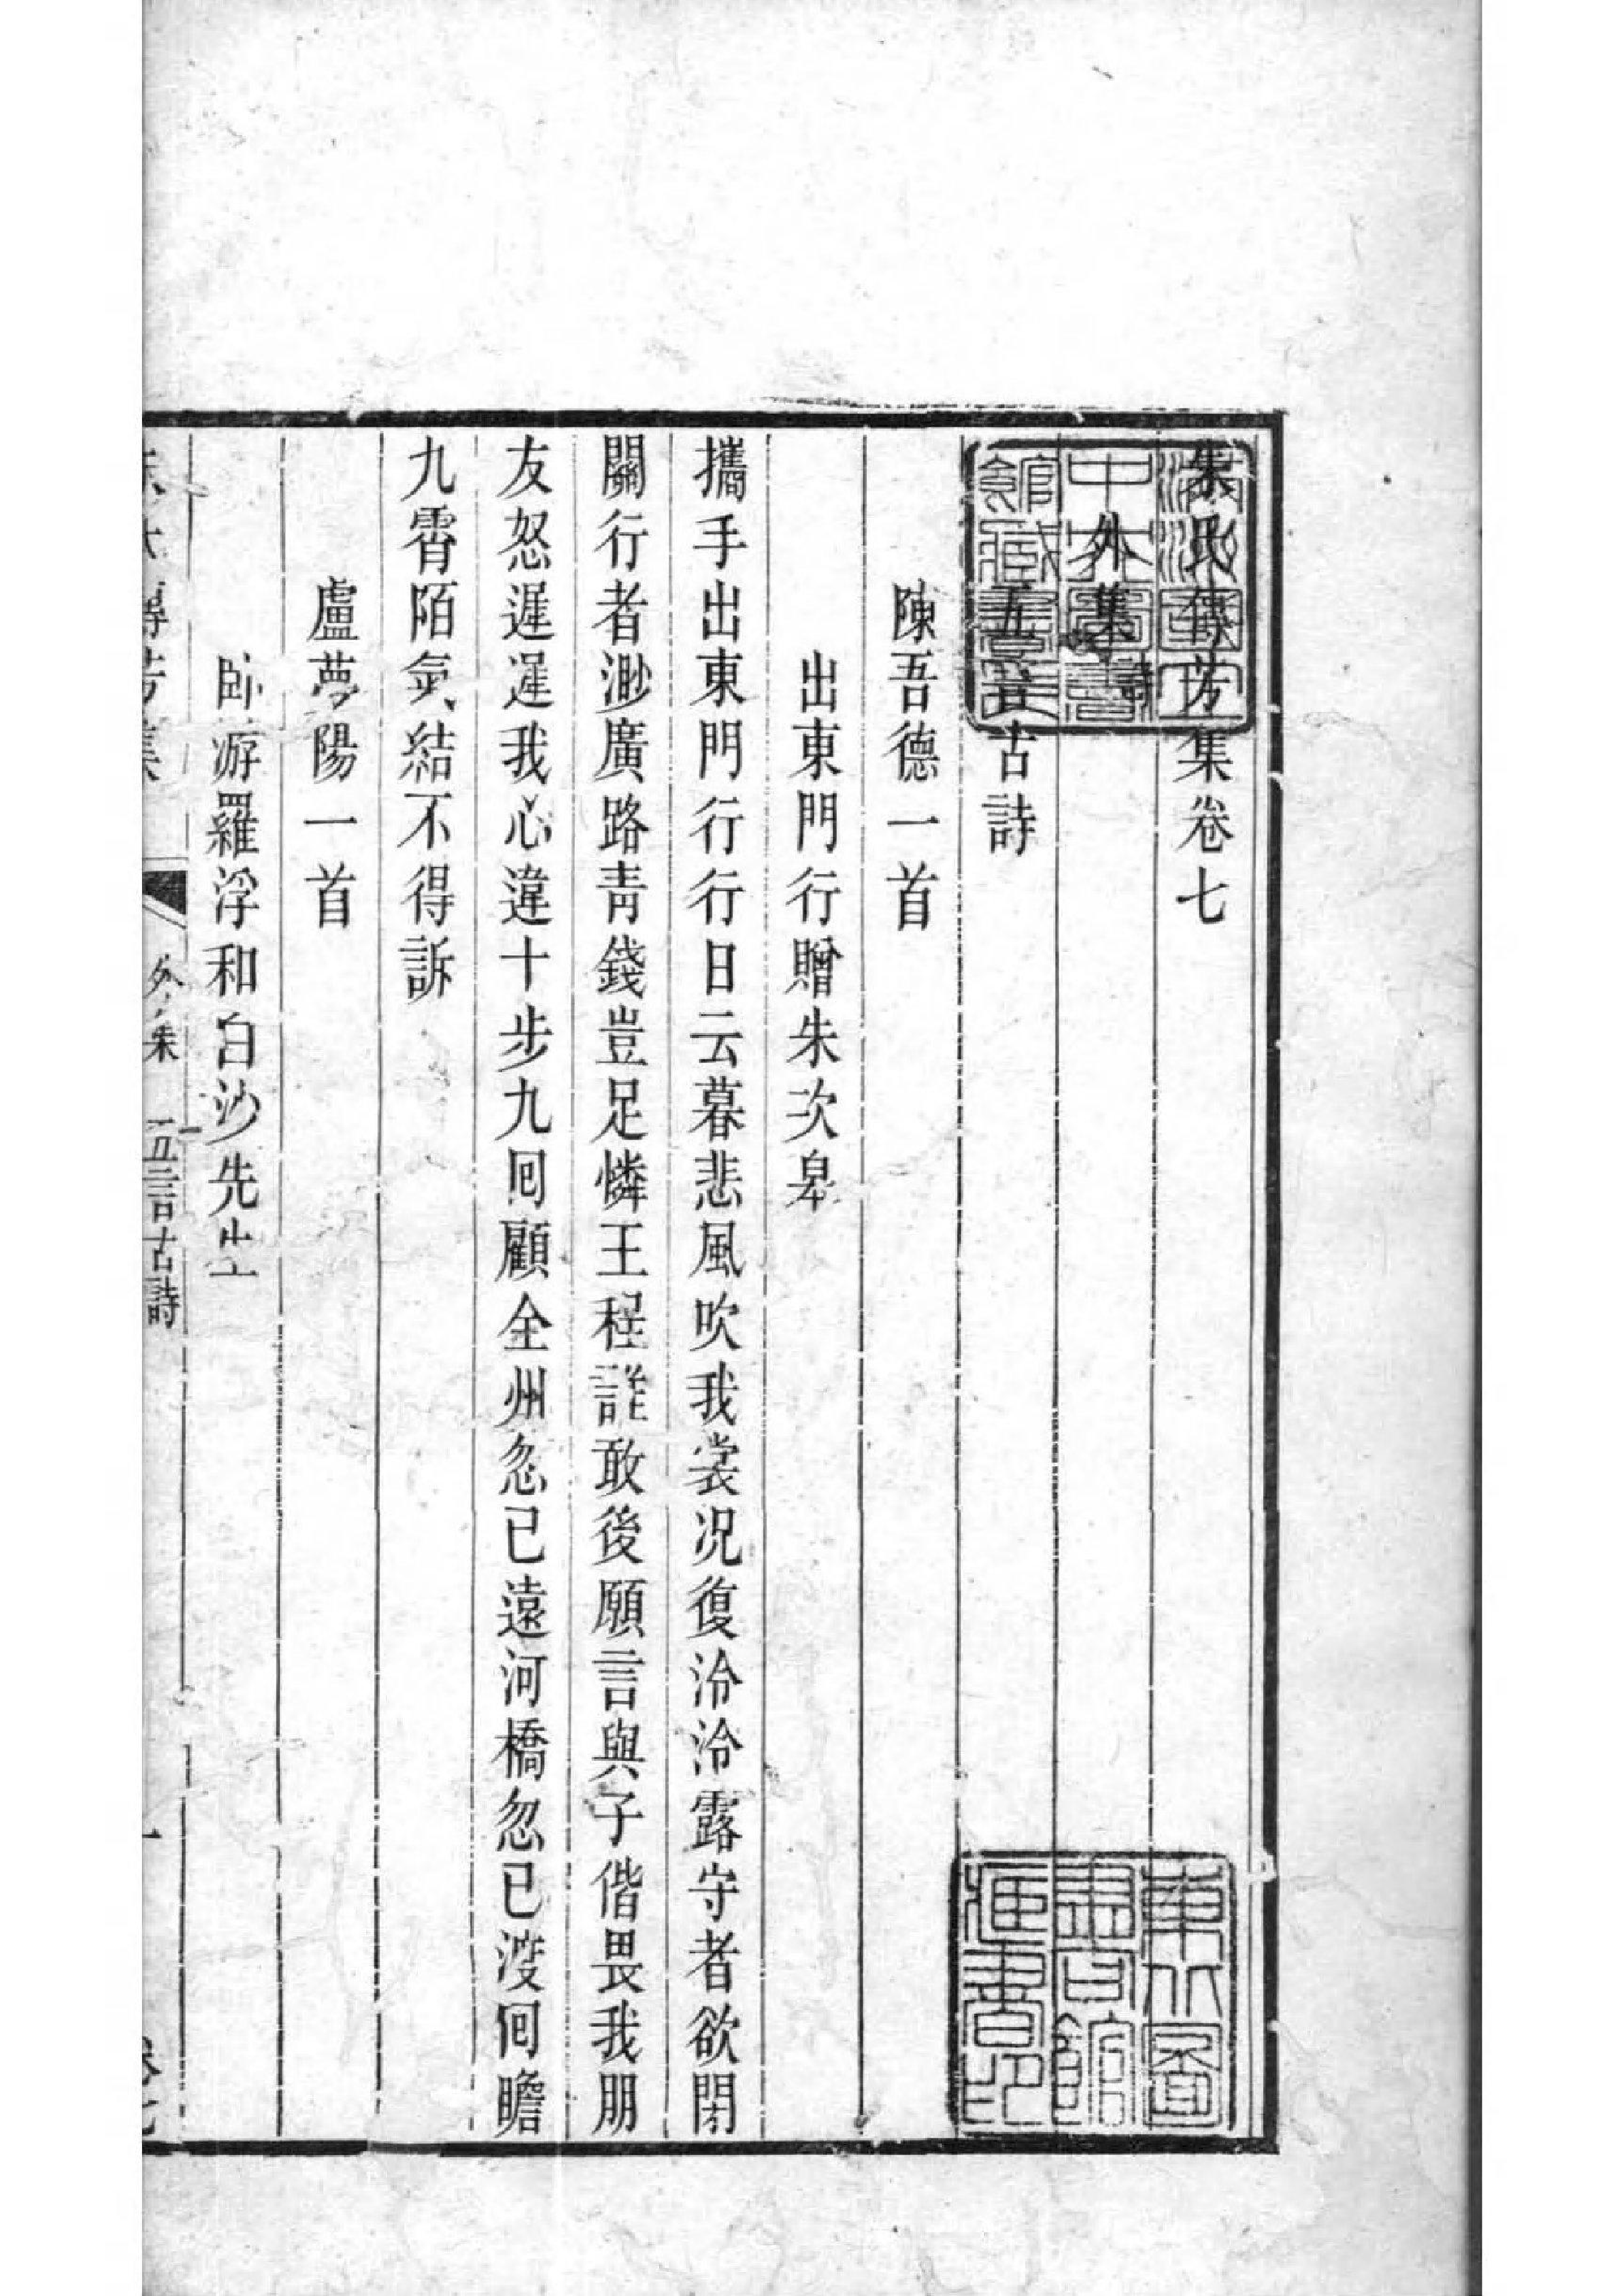 朱氏傳芳集卷七
外集 詩
五言古詩
陳吾德一首
出東門行贈朱次皋
攜手出東門行行日云暮悲風吹我裳況復泠泠露守者欲閉
關行者渺廣路青錢豈足憐王程誰敢後願言與子偕畏我朋
友怒遲遲我心違十步九囘顧全州忽已遠河橋忽已渡囘瞻
九霄陌氣結不得訴
盧夢陽一首
臥游羅浮和白沙先生
朱氏傳芳集 外集 五言古詩 一 卷七
東北圖書館藏書印